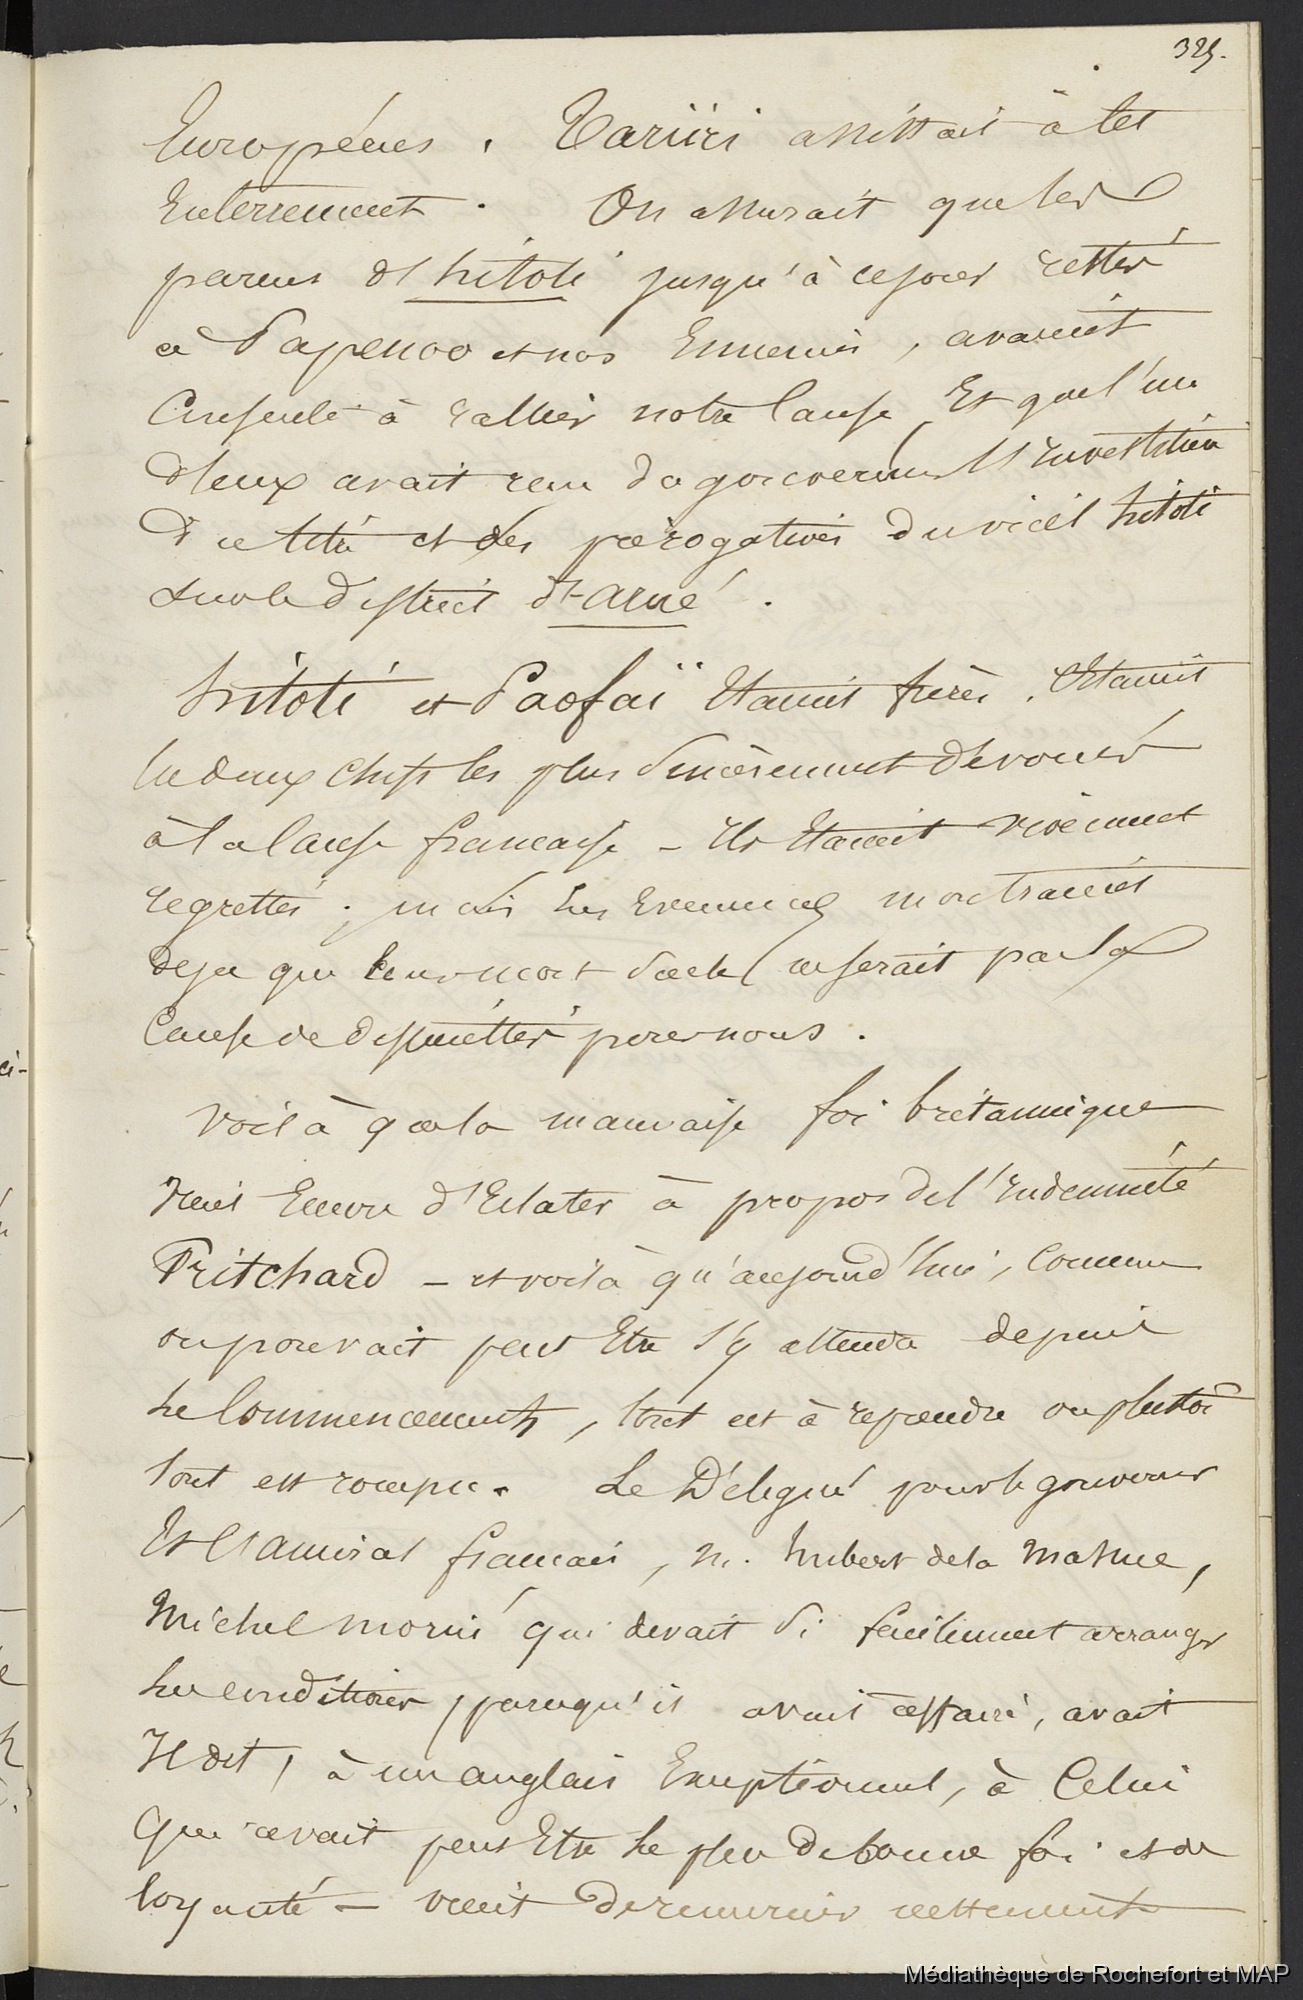 325.
Européens. Tariiri assistait à cet
Enterrement. On assurait que les
parens de hitoti jusqu'à ce jour restés
à Papenoo et nos Ennemis, avaient
Consenti à rallier notre Cause Et que l'un
d'eux avait reçu du gouverneur l'investiture
du titre et des prérogatives du vieil hitoti
sur le district d'arué.
hitoti et Paofaï Etaient frères. C'Etaient
les deux chefs les plus sincèrement dévoués
à la Cause française – Ils Etaient vivement
regrettés; mais les Evènemens montraient
deja que leur mort seule ne serait pas la
Cause de difficultés pour nous.
Voilà que la mauvaise foi britannique
vient Encore d'Eclater à propos de l'Indemnité
Pritchard – et voilà qu'aujourd'hui, Comme
on pouvait peut Etre s'y attendre depuis
le Commencement, tout est à reprendre ou plutôt
tout est rompu. Le Délégué pour le gouverneur
Et l'amiral français, M. hubert de la Massue,
Michel morin qui devait si facilement arranger
les conditions, parcequ'il avait affaire, avait
Il dit, à un anglais Exceptionnel, à Celui
Qui avait peut Etre le plus de bonne foi et de
loyauté – vient de revenir nettement
Médiathèque de Rochefort et MAP